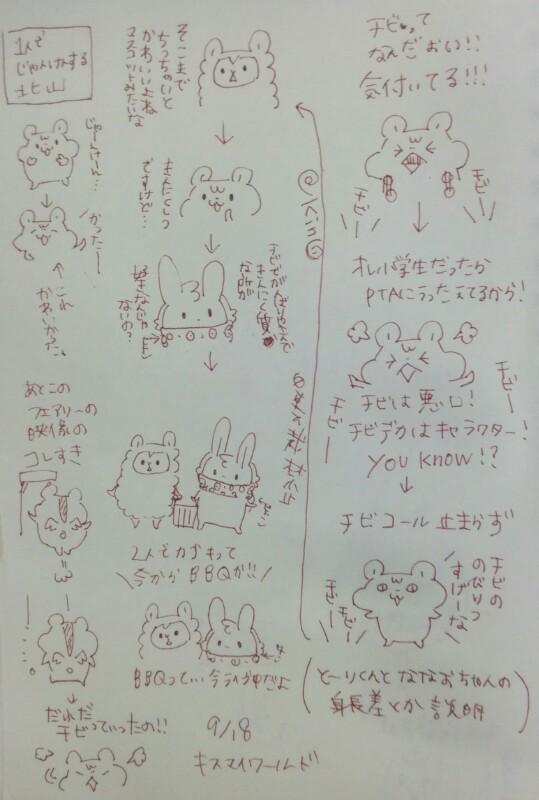 1人で
じゃんけんする
北山
じゃーんけーん…
かったー
↑これ
かわいかった。
あとこの
フェアリーの
映像の
コレすき
だれだ
チビっていったの!!
そこまで
ちっちゃいと
かわいいよね
マスコットみたいな
ですけど…
好きなんじゃ
ないの?
2人でカゴもって
今からBBQか!!
BBQっていい今ライブ中だよ
9/18
キスマイワールド
チビって
なんだおい!!
気付いてる!!!
チビー
チビー
オレ小学生だったら
PTAにうったえてるから!
チビー
チビー
チビは悪口!
チビデカはキャラクター!
YOU KNOW!?
チビコール止まらず
チビの
のびりつ
すげーな
チビー
チビー
(とーりくんとななおちゃんの
身長差とか説明)